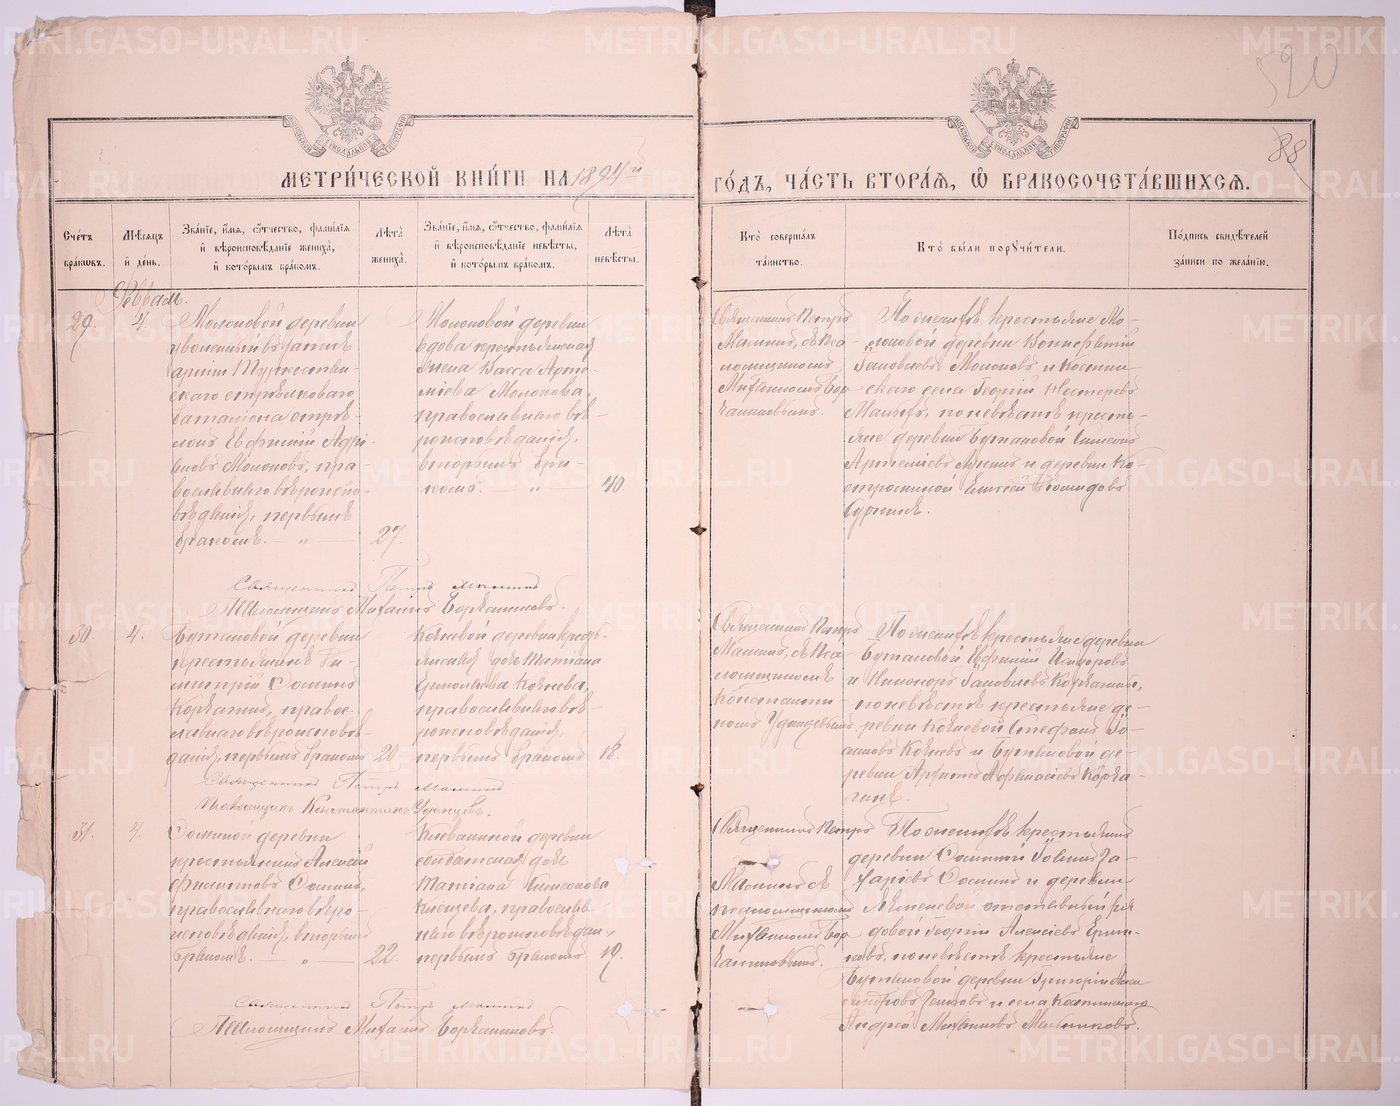 METRIKI.GASO-URAL.RU
520
88
МЕТРИ́ЧЕСКОЙ КНИ́ГИ НА 1894й ГО́ДЪ, ЧА́СТЬ ВТОРА́Я, Ѿ БРАКОСОЧЕТА́ВШИХСЯ.
Сче́тъ бра́ковъ.
Мѣ́сяцъ и́ де́нь.
Зва́нїе, и́мя, ѻ́тчество, фами́лїя и́ вѣроисповѣ́данїе жениха̀, и́ кото́рымъ бра́комъ.
Лѣ́та жениха̀.
Зва́нїе, и́мя, ѻ́тчество, фами́лїя и́ вѣроисповѣ́данїе невѣ́сты, и́ кото́рымъ бра́комъ.
Лѣ́та невѣ́сты.
Кто̀ соверша́лъ та́инство.
Кто̀ бы́ли поручи́тели.
По́дпись свидѣ́телей за́писи по жела́нїю.
29.
4.
Молоковой деревни
уволенный въ запас
армии Туркестан-
скаго стрѣлковаго
баталіона стрѣ-
локъ Евфимій Адрі-
ановъ Молоковъ, пра-
вославнаго вѣроиспо-
вѣданія, первымъ
бракомъ. — „ —
27.
Молоковой деревни
вдова крестьянская
Васса Арте-
міева Молокова,
православнаго вѣ-
роисповѣданія,
вторымъ бра-
комъ. — „
40
Священникъ Петръ
Маминъ, съ пса-
ломщикомъ
Михаиломъ Бор-
чаниновымъ.
По женихѣ крестьяне Мо-
локовой деревни
Іаковлевъ Молоковъ и Костин-
скаго села Георгій Нестеровъ
по невѣстѣ кресть-
яне деревни Бутаковой
Артеміевъ и деревни Ко-
Священникъ Петръ Маминъ
Псаломщикъ Михаилъ Борчаниновъ.
30.
4.
Бутаковой деревни
крестьянинъ Ди-
митрій
Корчагинъ, право-
славнаго вѣроисповѣ-
данія, первымъ бракомъ
20
Кочневой деревни кресть-
янская дочь Татіана
Ермолаева Кочнева,
православнаго вѣ-
роисповѣданія,
первымъ бракомъ
18.
Священникъ Петръ
Маминъ, съ пса-
ломщикомъ
Константи-
номъ Удинцевымъ
По женихѣ крестьяне деревни
Бутаковой Евфимій Исидоровъ
и Никаноръ Іаковлевъ Корчагины,
по невѣстѣ крестьяне де-
ревни Кочневой Стефанъ Іо-
анновъ Кочневъ и Бутаковой де-
ревни Афанасіевъ Корча-
гинъ.
Священникъ Петръ Маминъ
Псаломщикъ Константинъ Удинцевъ.
31.
4.
Соминой деревни
крестьянинъ Алексій
Филипповъ Соминъ,
православнаго вѣро-
исповѣданія, вторымъ
бракомъ. — „ —
22.
Клевакиной деревни
солдатская дочь
Татіана Симеонова
православ-
наго вѣроисповѣдан.,
первымъ бракомъ
19.
Священникъ Петръ
Маминъ съ
псаломщикомъ
Михаиломъ Бор-
чаниновымъ.
По женихѣ крестьянинъ
деревни Соминой За-
харіевъ Соминъ и деревни
отставный ря-
довой Георгій Алексіевъ
по невѣстѣ крестьяне
Бутаковой деревни Григорій
и села Костинскаго
Андрей Михаиловъ Мельниковъ.
Священникъ Петръ Маминъ
Псаломщикъ Михаилъ Борчаниновъ.